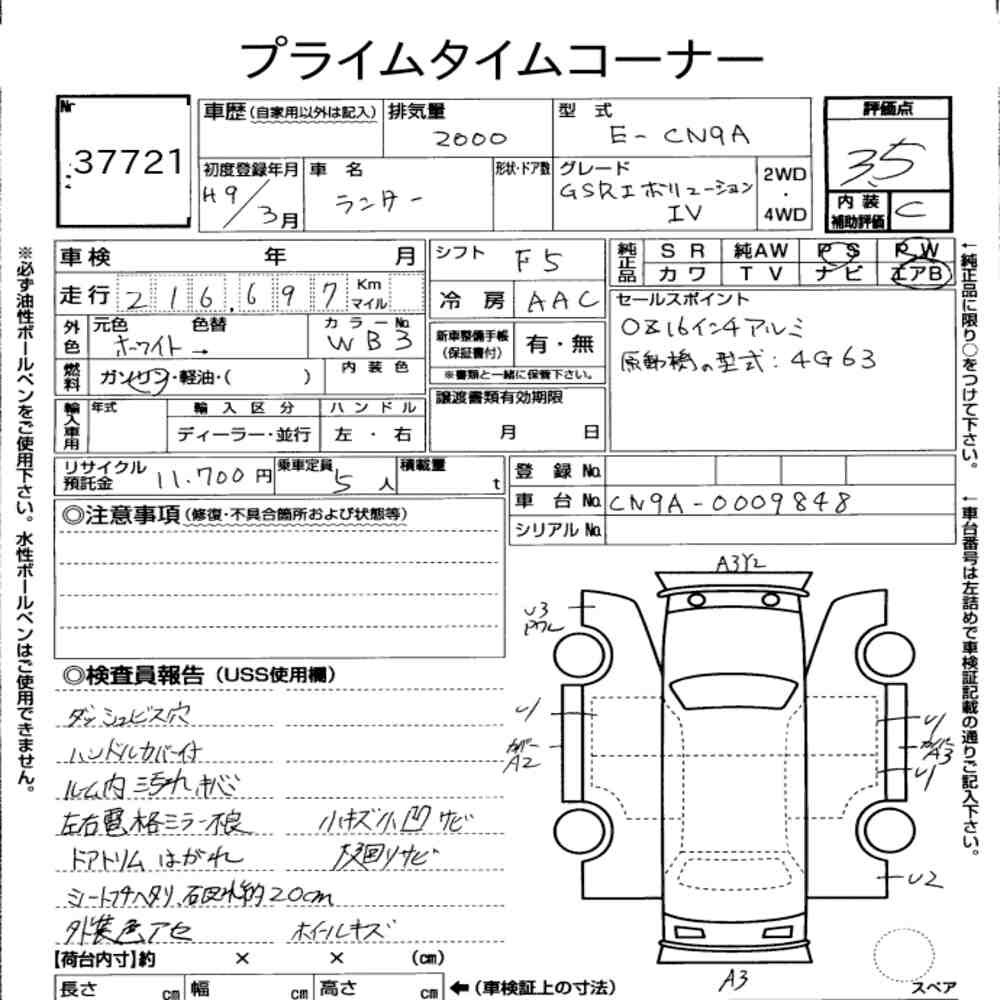 プライムタイムコーナー
Nr 37721
車歴(自家用以外は記入) 排気量 2000 型式 E-CN9A
評価点 3.5
初度登録年月 H9/3月 車名 ランサー 形状・ドア数 グレード GSRエボリューション IV 2WD・4WD
内装補助評価 C
車検 年 月 シフト F5
純正品 SR 純AW PS PW
カワ TV ナビ エアB
走行 216,697 Km マイル 冷房 AAC
セールスポイント
O&16インチアルミ
原動機の型式:4G63
外色 元色 ホワイト → 色替 カラーNo. WB3
新車整備手帳(保証書付) 有・無
※書類と一緒に保管下さい。
燃料 ガソリン・軽油・( ) 内装色
譲渡書類有効期限 月 日
輸入車用 年式 輸入区分 ハンドル
ディーラー・並行 左・右
リサイクル預託金 11.700円 乗車定員 5人 積載量 t
登録No.
車台No. CN9A-0009848
シリアルNo.
◎注意事項(修復・不具合箇所および状態等)
◎検査員報告(USS使用欄)
ダッシュビス穴
ハンドルカバー付
ルーム内汚れ
左右電格ミラー不良 小キズ小凹サビ
ドアトリムはがれ 下回りサビ
20cm
外装色アセ ホイールキズ
【荷台内寸】約 × × (cm)
長さ cm 幅 cm 高さ cm ←(車検証上の寸法)
A3Y2
U3
U1
カバー A2
U1
A3
U1
U2
A3
スペア
※必ず油性ボールペンをご使用下さい。水性ボールペンはご使用できません。
←純正品に限り○をつけて下さい。
←車台番号は左詰めで車検証記載の通りご記入下さい。